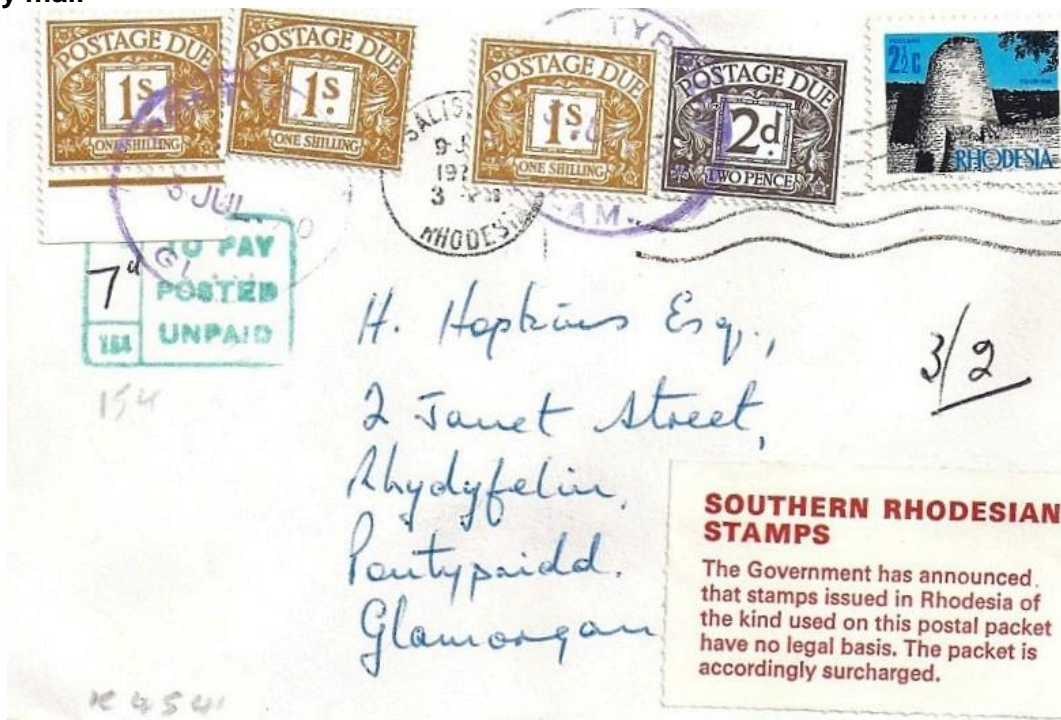 y mail
POSTAGE DUE
1s.
ONE SHILLING
POSTAGE DUE
1s.
ONE SHILLING
POSTAGE DUE
1s.
ONE SHILLING
POSTAGE DUE
2d.
TWO PENCE
2½c
RHODESIA
9 J
3
RHODESIA
JUL
TO PAY
7d
POSTED
UNPAID
154
154
H. Hopkins Esq.,
2 Janet Street,
Rhydyfelin,
Pontypridd.
Glamorgan
3/2
SOUTHERN RHODESIAN
STAMPS
The Government has announced
that stamps issued in Rhodesia of
the kind used on this postal packet
have no legal basis. The packet is
accordingly surcharged.